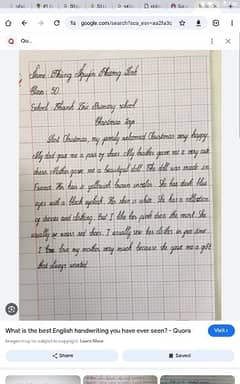 google.com/search?sca_esv=aa2fa3c
Qu...
Name: Phùng Nguyễn Phương Linh
Class: 5D
School: Khanh Primary school
Christmas
Last Christmas, my family welcomed Christmas very happy.
My dad gave me a pair of shoes. My brother gave me a very cute
dress. Mother gave me a beautiful doll. The doll was made in
France. He has is yellowish brown. She has dark blue
eyes with a black eyelash. Her skin is white. She has a collection
of dresses and clothing, but I like her pink dress the most. She
usually wears red shoes. I usually sew her clothes in free time.
I love my mother very much because she gave me a gift
that always wanted.
What is the best English handwriting you have ever seen? - Quora
Visit ›
Images may be subject to copyright. Learn More
Share
Saved